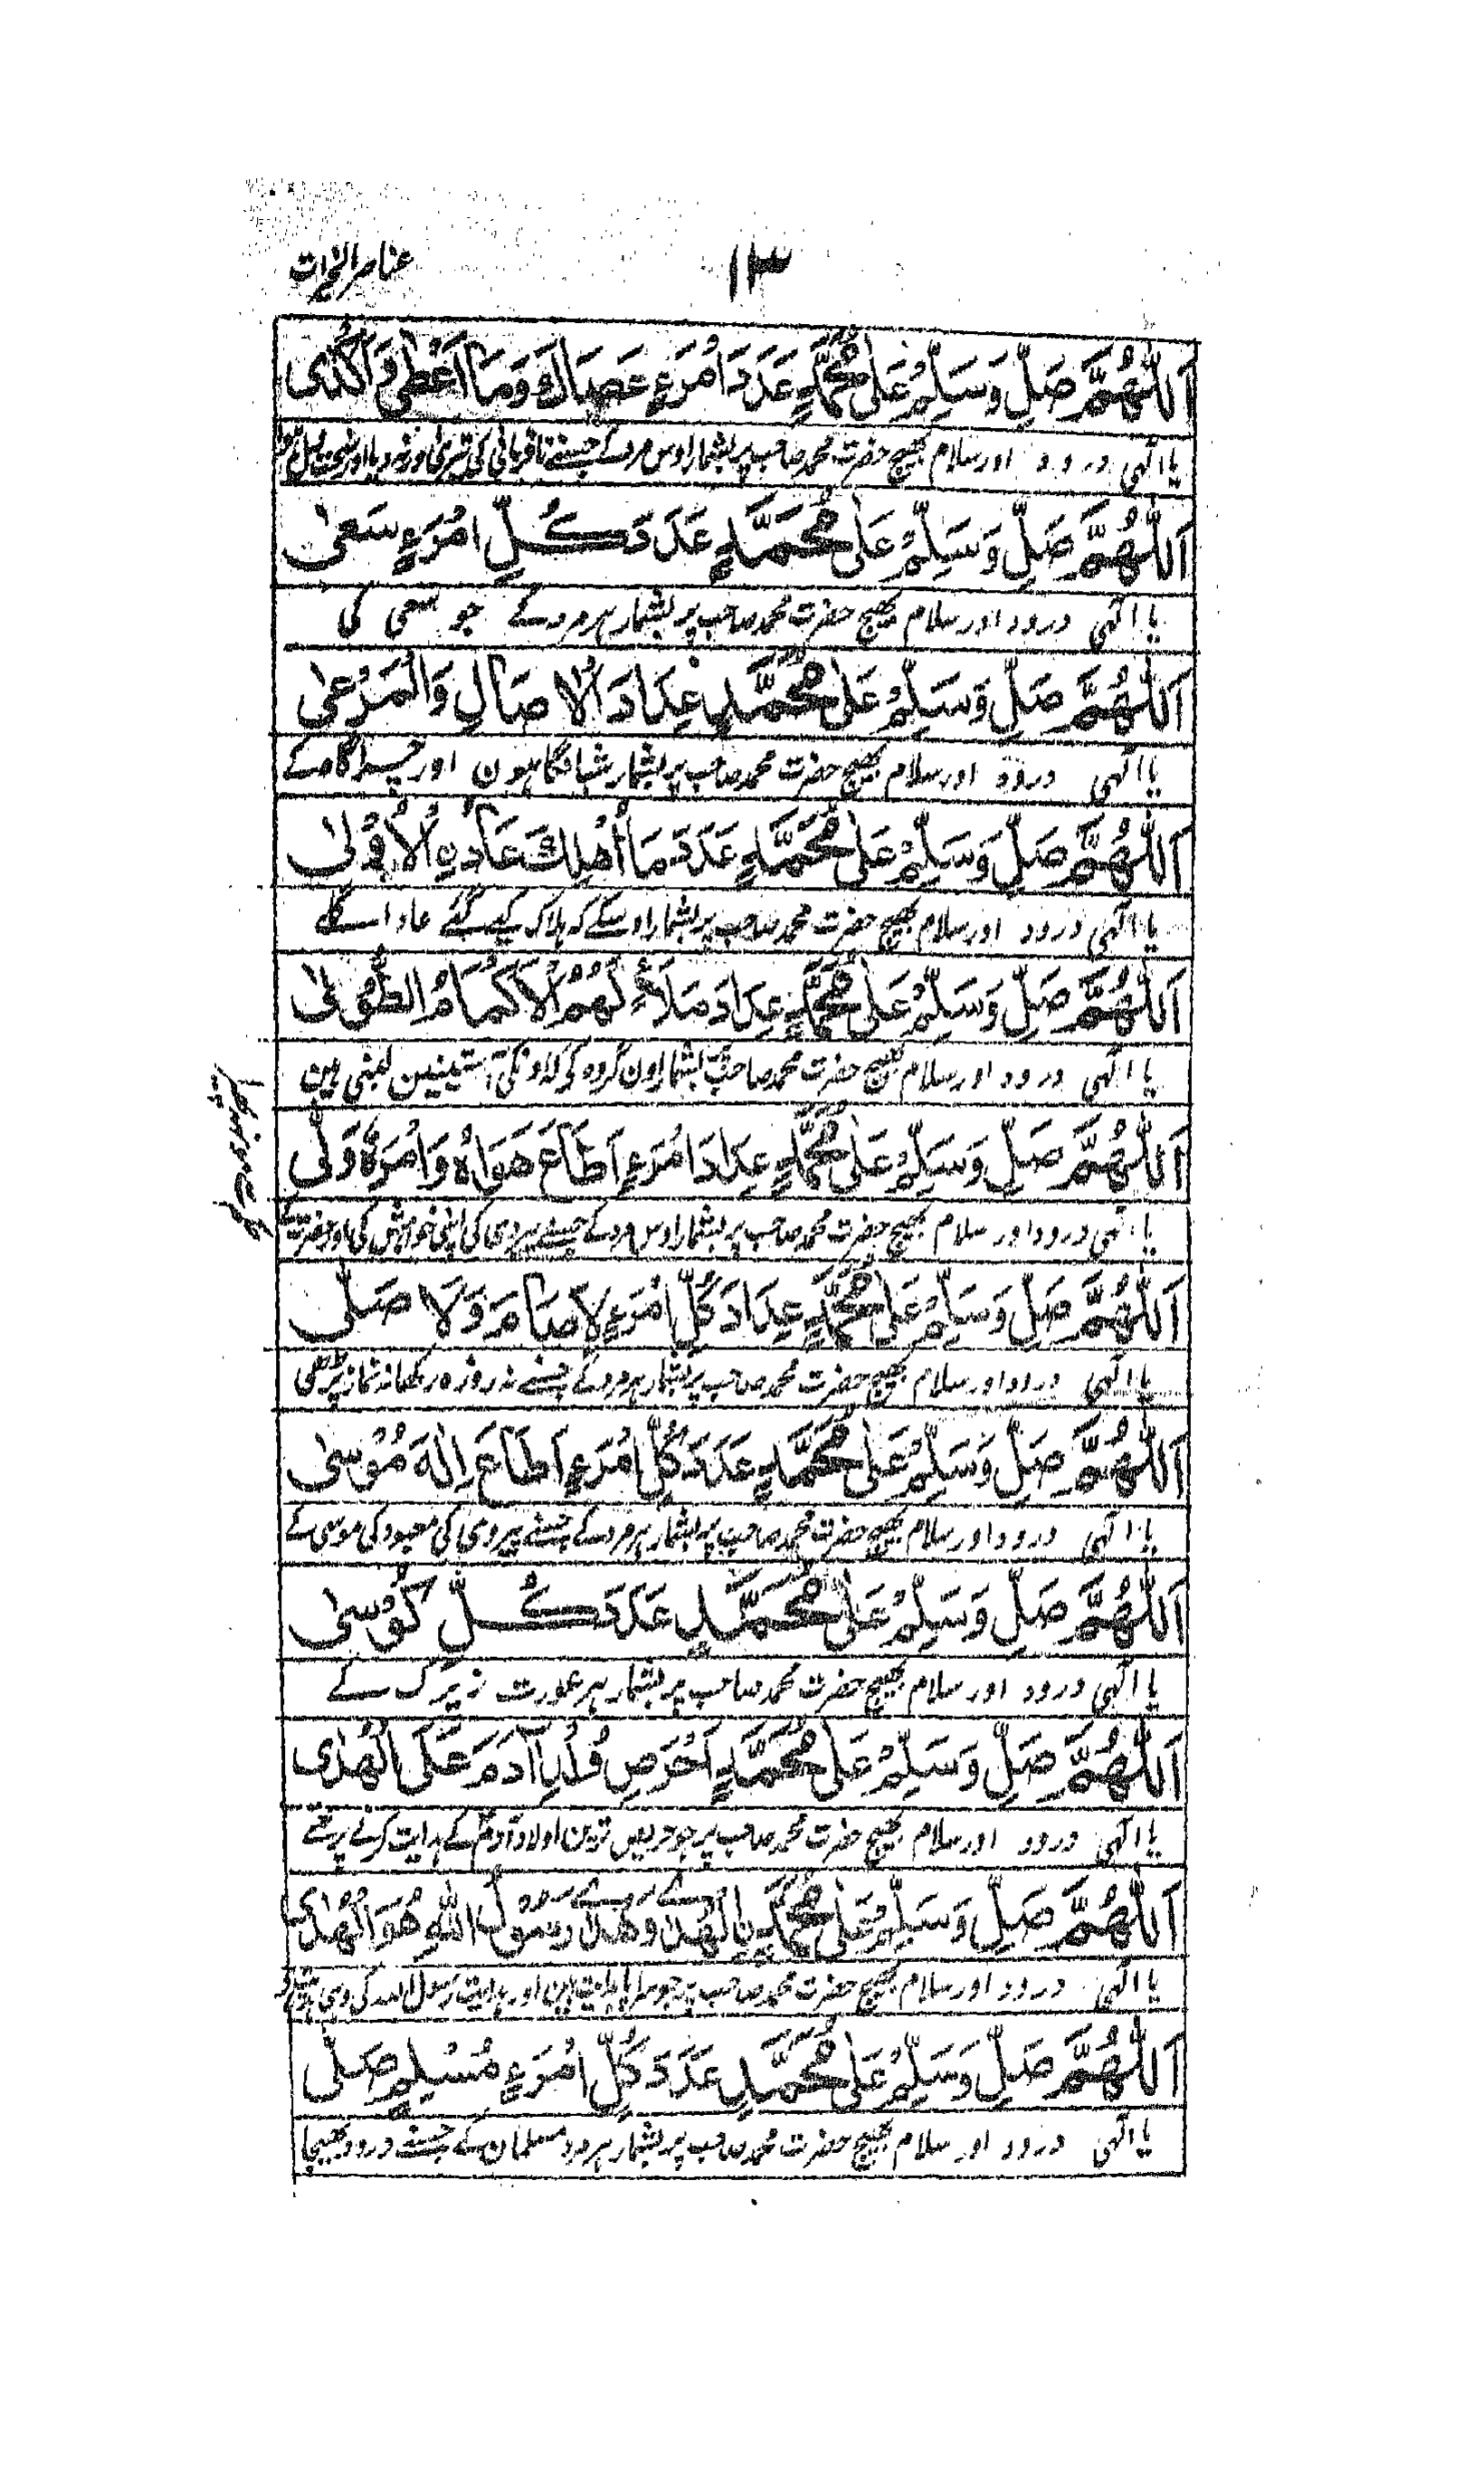 ۱۳
عناصر الخیرات
اَللّٰهُمَّ صَلِّ وَسَلِّمْ عَلٰى مُحَمَّدٍ عَدَدَ امْرَءٍ عَصَاكَ وَمَا اَعْطٰى وَاَكْدٰى
یا الٰہی درود اور سلام بھیج حضرت محمد صاحب پر بشمار اوس مرد کے جسنے نافرمانی کی تیری اور نہ دیا اور
اَللّٰهُمَّ صَلِّ وَسَلِّمْ عَلٰى مُحَمَّدٍ عَدَدَ كُلِّ امْرَءٍ سَعٰى
یا الٰہی درود اور سلام بھیج حضرت محمد صاحب پر بشمار ہر مرد کے جو سعی کی
اَللّٰهُمَّ صَلِّ وَسَلِّمْ عَلٰى مُحَمَّدٍ عِدَادَ الْاٰصَالِ وَالْمَرْعٰى
یا الٰہی درود اور سلام بھیج حضرت محمد صاحب پر بشمار شبانگاہون اور چراگاہ کے
اَللّٰهُمَّ صَلِّ وَسَلِّمْ عَلٰى مُحَمَّدٍ عَدَدَ مَا اُهْلِكَ عَادُ ِالْاُوْلٰى
یا الٰہی درود اور سلام بھیج حضرت محمد صاحب پر بشمار اوسکے کہ ہلاک کیے گئے عاد اگلے
اَللّٰهُمَّ صَلِّ وَسَلِّمْ عَلٰى مُحَمَّدٍ عِدَادَ مَلَاءٍ لَهُمُ الْاَكْمَامُ الطُّوْلٰى
یا الٰہی درود اور سلام بھیج حضرت محمد صاحب پر بشمار اون گروہ کو کہ اونکی آستینین لمبی ہین
اَللّٰهُمَّ صَلِّ وَسَلِّمْ عَلٰى مُحَمَّدٍ عِدَادَ امْرَءٍ اَطَاعَ هَوَاهُ وَامْرَهٗ وَلّٰى
یا الٰہی درود اور سلام بھیج حضرت محمد صاحب پر بشمار اوس مرد کے جسنے پیروی کی اپنی خواہش کی اور
اَللّٰهُمَّ صَلِّ وَسَلِّمْ عَلٰى مُحَمَّدٍ عِدَادَ كُلِّ امْرَءٍ لَا صَامَ وَلَا صَلّٰى
یا الٰہی درود اور سلام بھیج حضرت محمد صاحب پر بشمار ہر مرد کے جسنے نہ روزہ رکھا نہ نماز پڑھی
اَللّٰهُمَّ صَلِّ وَسَلِّمْ عَلٰى مُحَمَّدٍ عَدَدَ كُلِّ امْرَءٍ اَطَاعَ اِلٰهَ مُوْسٰى
یا الٰہی درود اور سلام بھیج حضرت محمد صاحب پر بشمار ہر مرد کے جسنے پیروی کی معبود کی موسی کے
اَللّٰهُمَّ صَلِّ وَسَلِّمْ عَلٰى مُحَمَّدٍ عَدَدَ كُلِّ كُوْسٰى
یا الٰہی درود اور سلام بھیج حضرت محمد صاحب پر بشمار ہر عورت زیرک کے
اَللّٰهُمَّ صَلِّ وَسَلِّمْ عَلٰى مُحَمَّدٍ اَحْرَصِ وُلْدِ اٰدَمَ عَلَى الْهُدٰى
یا الٰہی درود اور سلام بھیج حضرت محمد صاحب پر جو حریص ترین اولاد آدم کے ہدایت کرنے پر تھے
اَللّٰهُمَّ صَلِّ وَسَلِّمْ عَلٰى مُحَمَّدٍ الْهُدٰى وَهُدٰى رَسُوْلِ اللّٰهِ هُوَ الْهُدٰى
یا الٰہی درود اور سلام بھیج حضرت محمد صاحب پر جو سراپا ہدایت ہین اور ہدایت رسول اللہ کی وہی
اَللّٰهُمَّ صَلِّ وَسَلِّمْ عَلٰى مُحَمَّدٍ عَدَدَ كُلِّ امْرَءٍ مُسْلِمٍ صَلّٰى
یا الٰہی درود اور سلام بھیج حضرت محمد صاحب پر بشمار ہر مرد مسلمان کے جسنے درود بھیجا